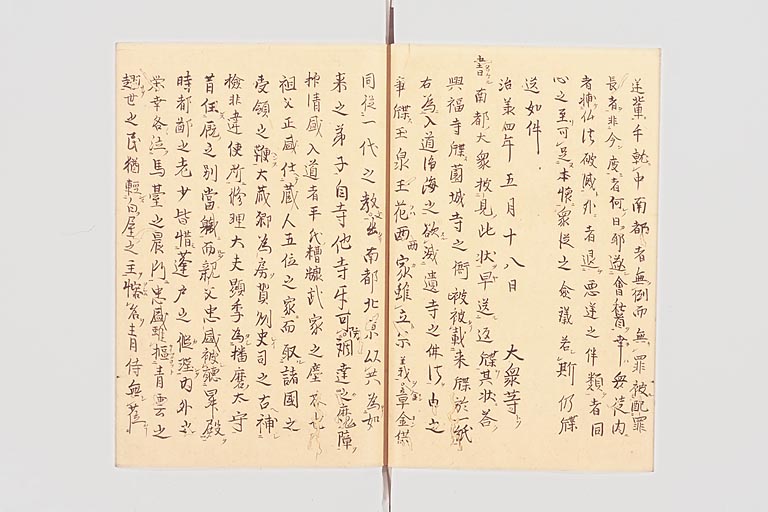 逆輩千乾中南都者無例而無罪被配罪
長者非今度者何日邪遂會稽幸無辺内
者補仏法破滅外者退悪逆之伴類者同
心之至可足本懐衆徒之僉議若斯仍牒
送如件
治義四年五月十八日 大衆等
書南都大衆披見此状早送返牒其状答
興福寺牒園城寺之衙被被載来牒於一紙
右為入道浄海之欲滅遺寺之仏法由之
事牒玉泉玉花西西家雖立宗義章金供
同従一代之教南都北京以共為如
来之弟子自寺他寺牙可調達之魔障
抑清盛入道者平氏糟糠武家之塵
祖父正盛仕蔵人五位之家而取諸国之
受領之鞭大蔵卿為房賀州史司之古補
檢非違使所修理大夫顕季為播磨太守
昔任厩之別當職而親父忠盛被聴昇殿
時都鄙之老少皆惜蓬戸之瑕瑾内外之
栄幸各泣馬臺之晨門忠盛雖摳青雲之
趐世之民猶軽白屋之主惜名青侍無